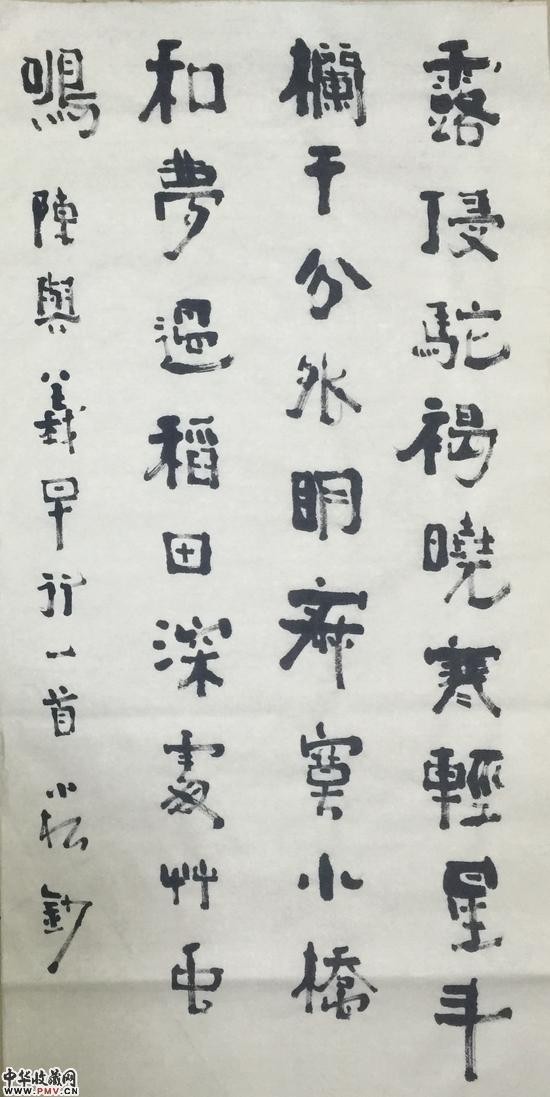 露侵駝褐曉寒輕星斗
欄干分外明寂寞小橋
和夢過稻田深處艸虫
鳴 陳與義早行一首 小松鈔
中华收藏网
WWW.PMV.CN